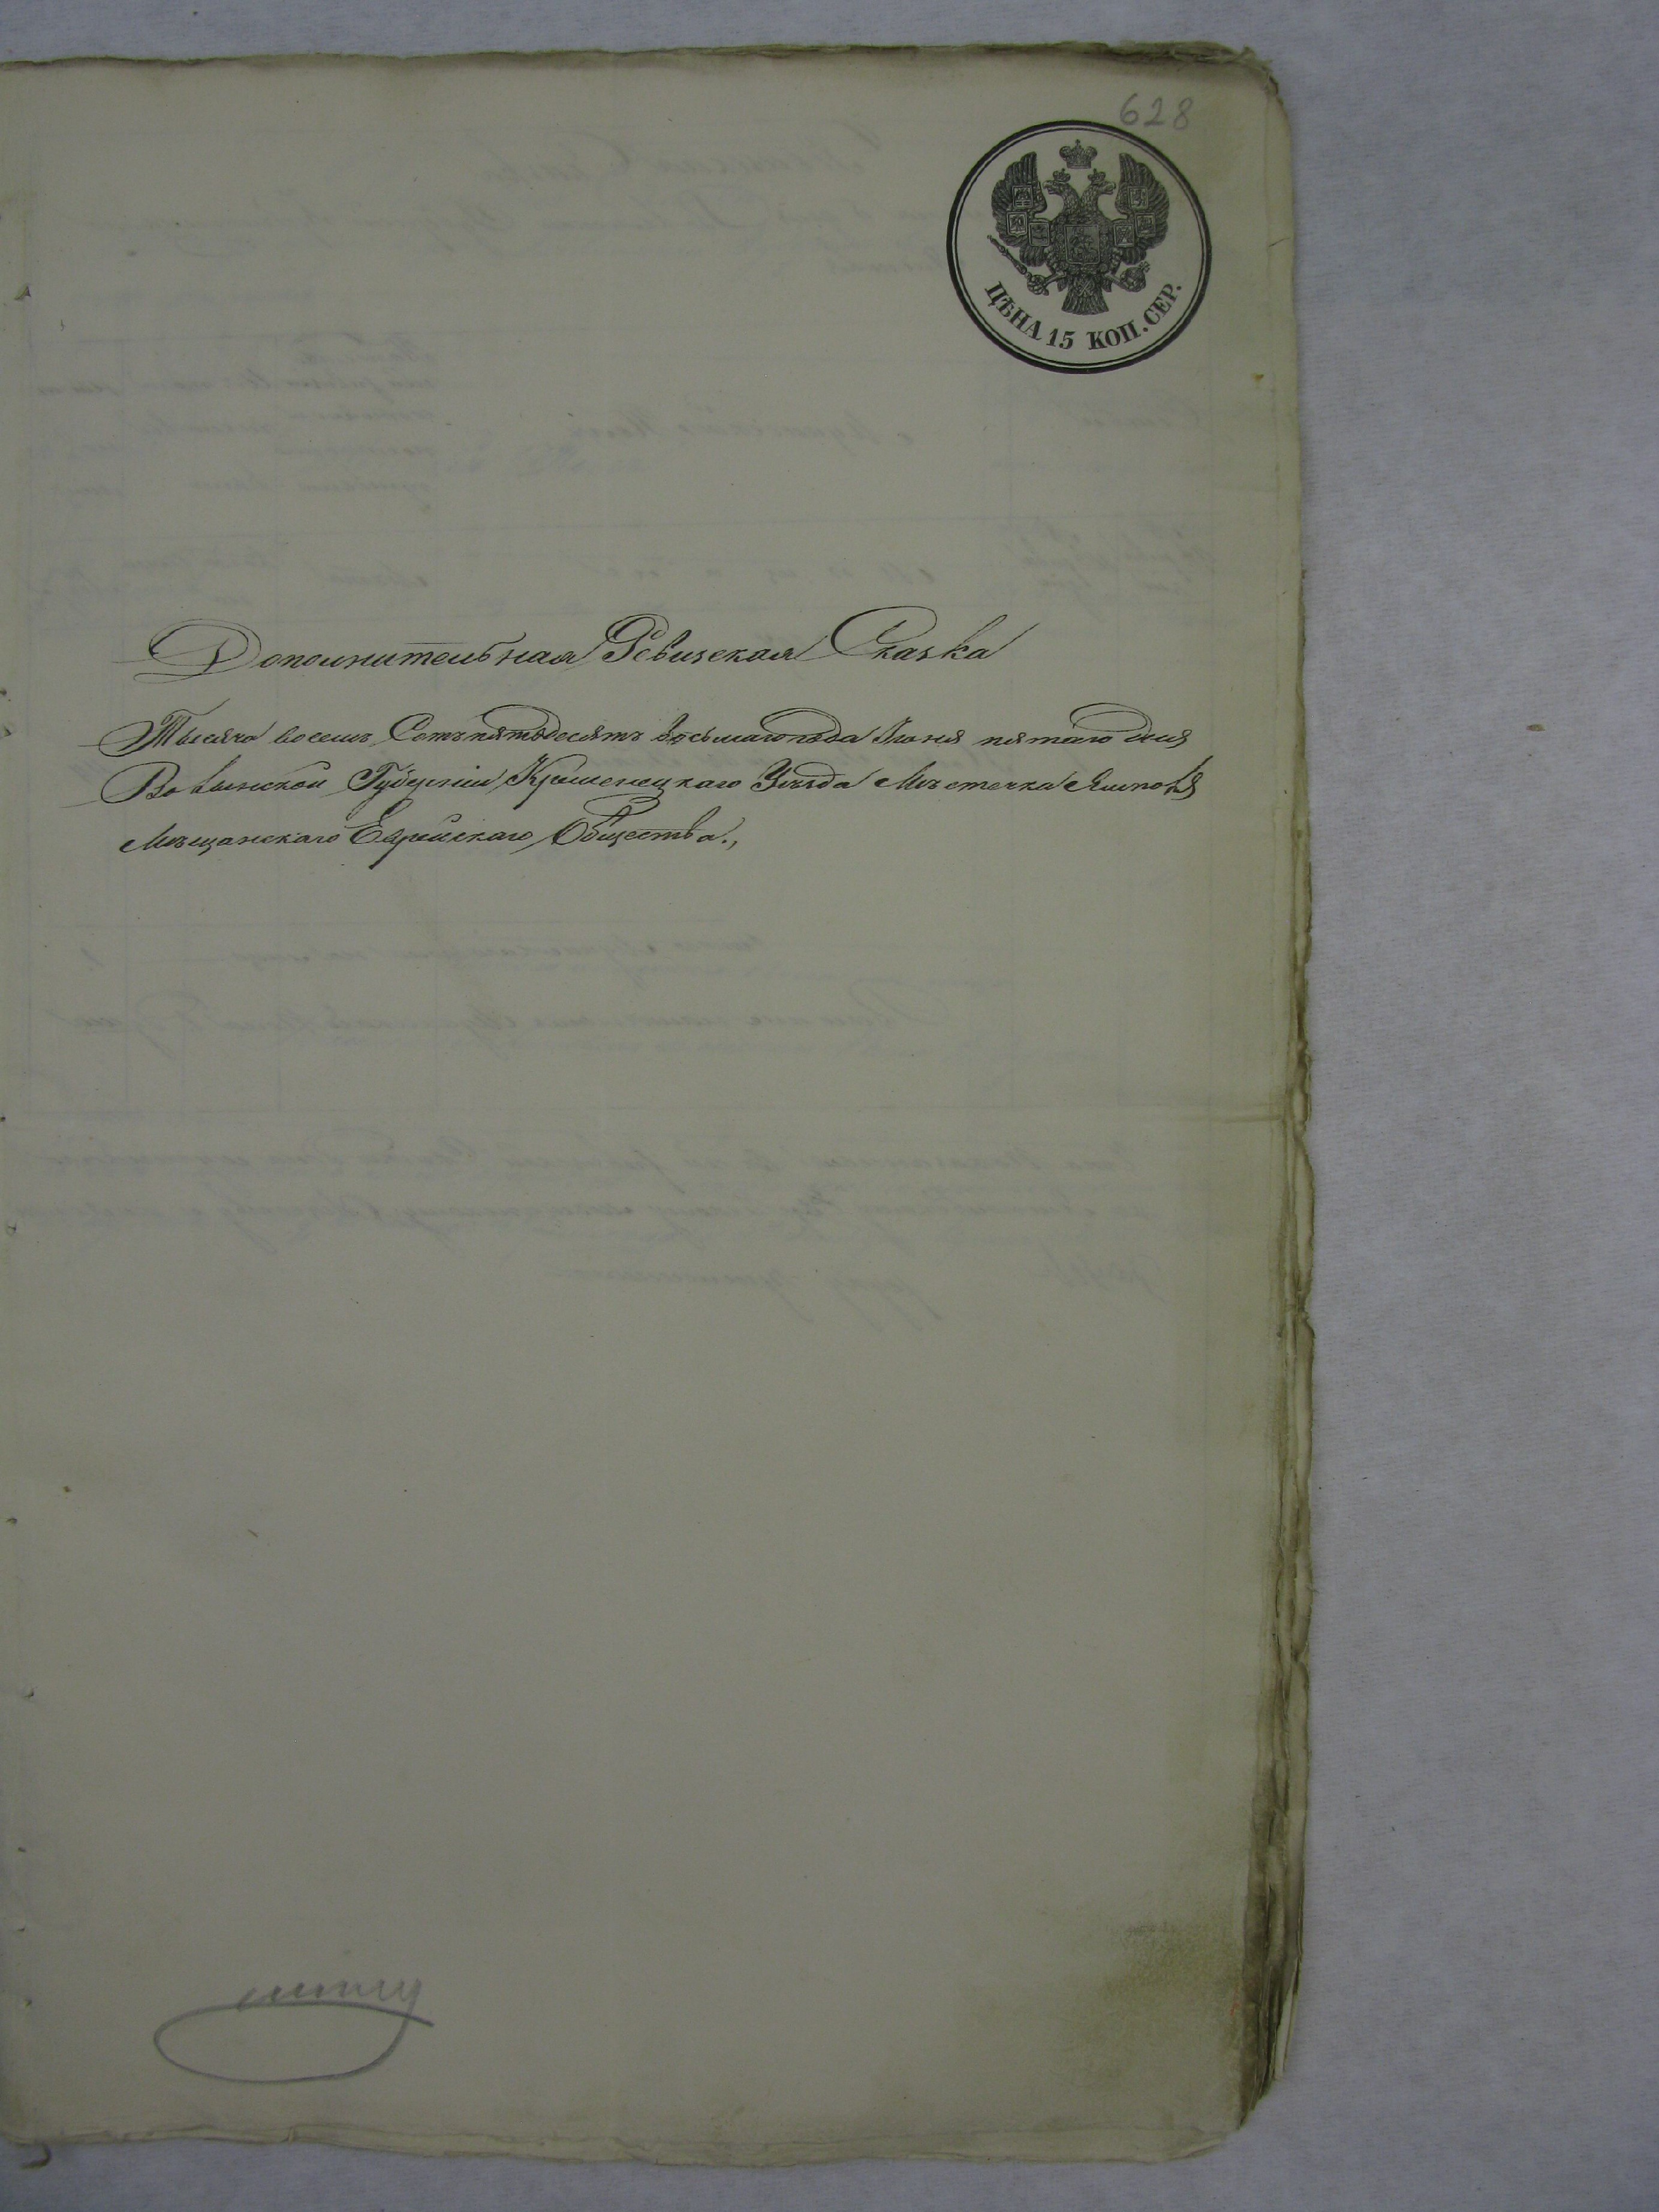 628
ЦѢНА 15 КОП. СЕР.
Дополнительная Ревизская Сказка
Тысяча восемь Сотъ пятьдесятъ восьмаго года Іюня пятаго дня
Волынской Губерніи Кременецкаго Уѣзда Мѣстечка Ямполя
Мѣщанскаго Еврейскаго Общества.,